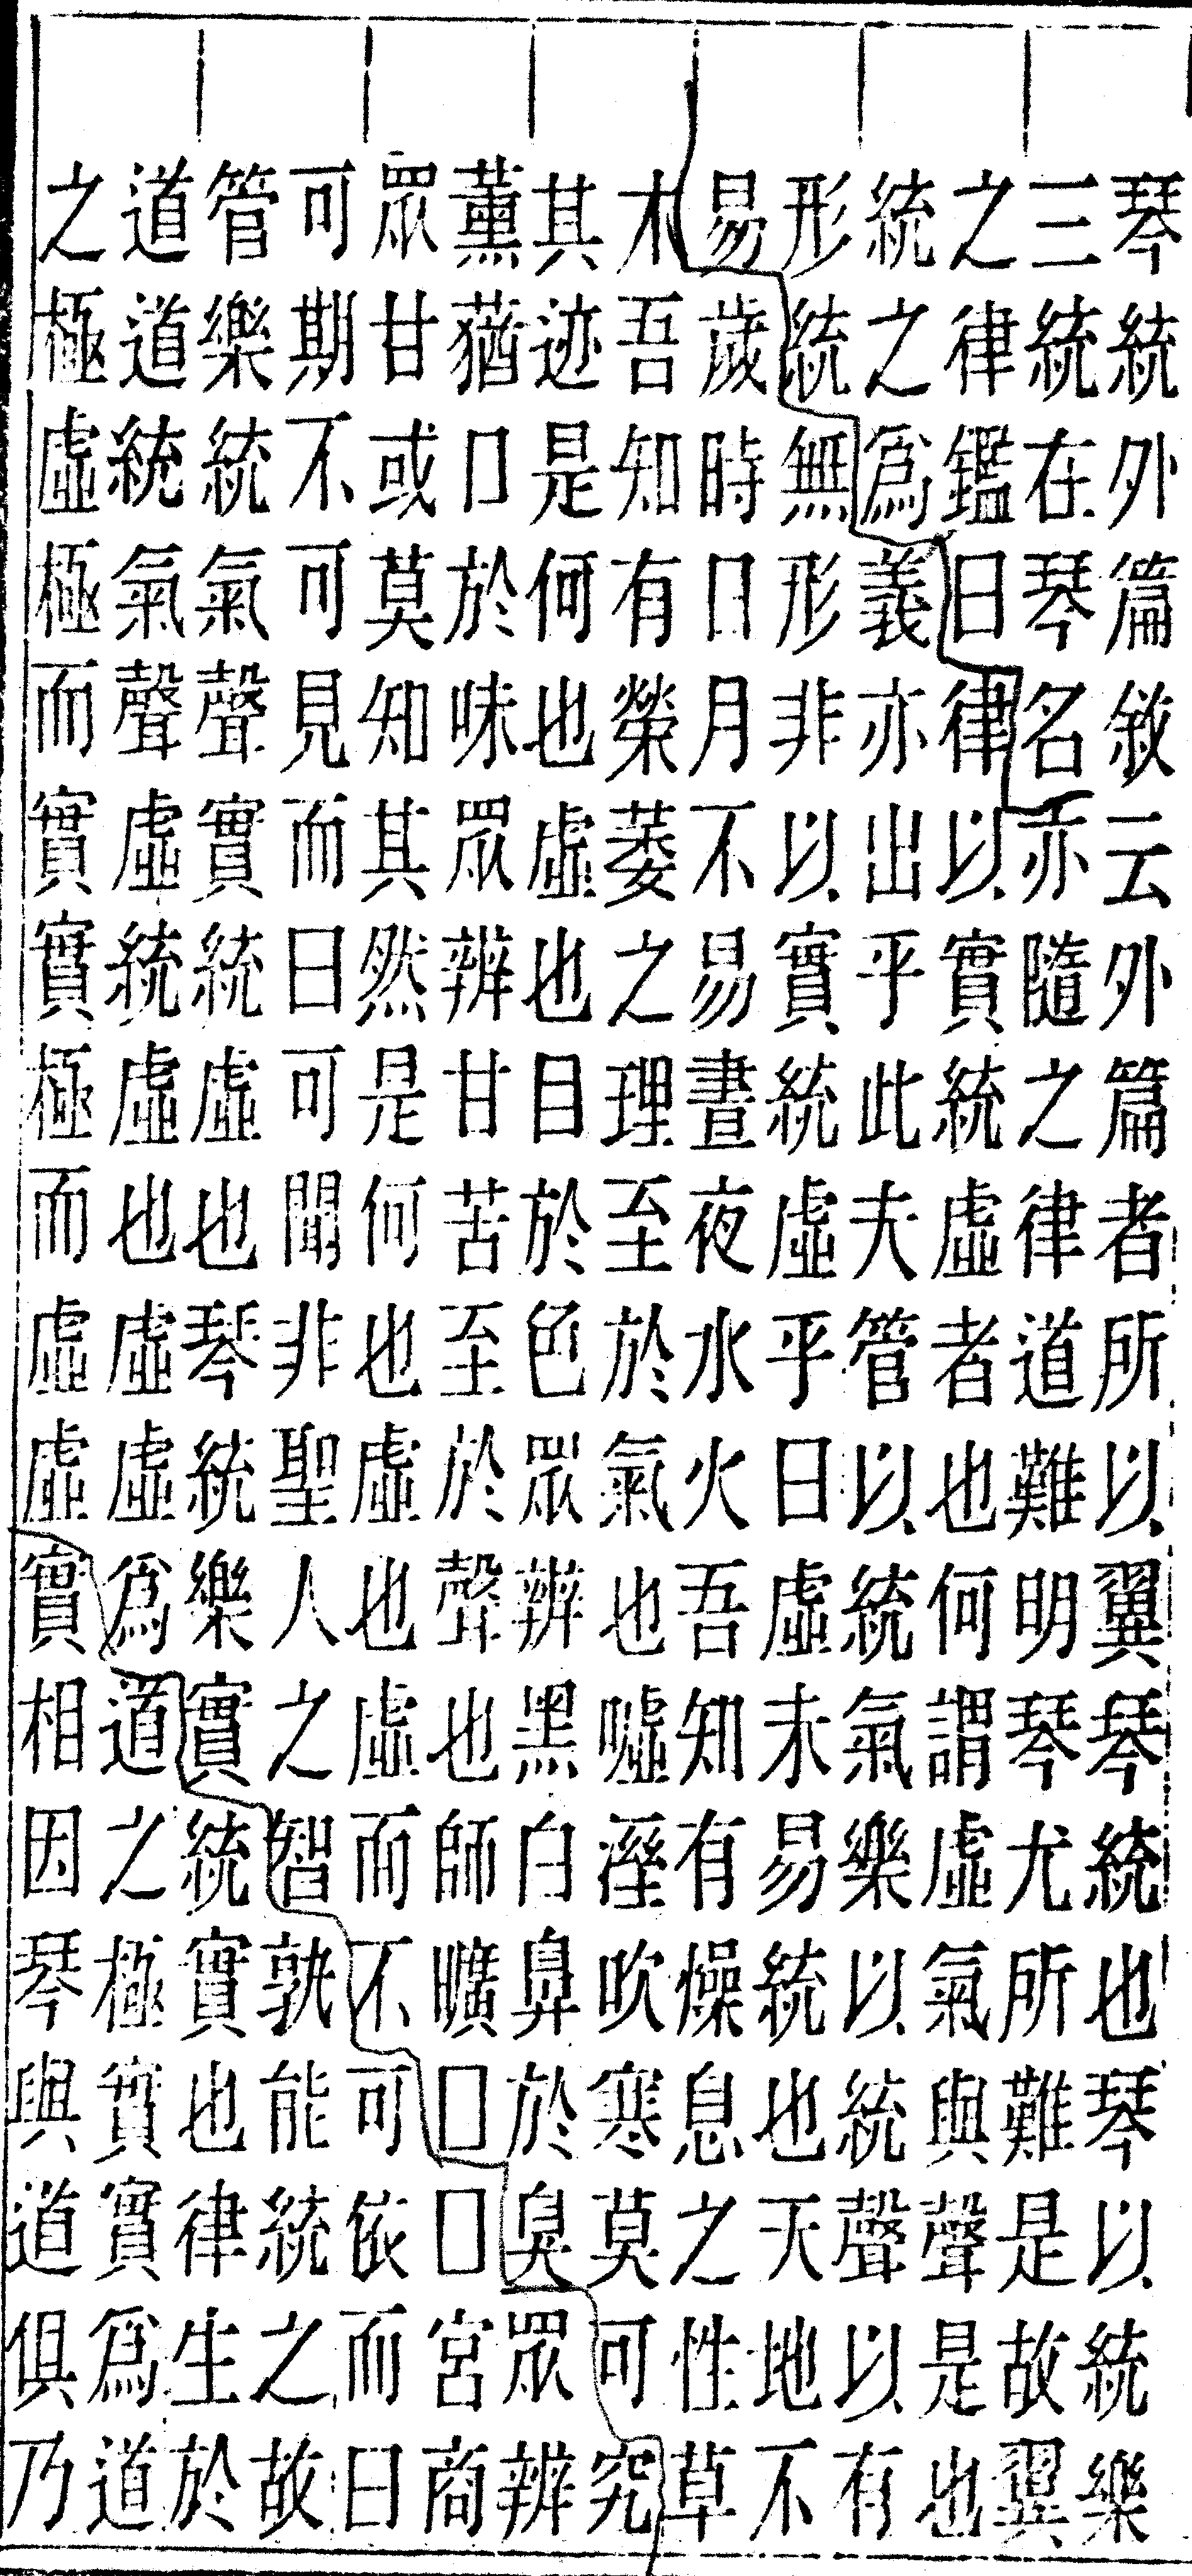 琴統外篇敘云外篇者所以翼琴統也琴以統樂
三統在琴名亦隨之律道難明琴尤所難是故翼
之律鑑曰律以實統虛者也何謂虛氣與聲是也
統之爲義亦出乎此夫管以統氣樂以統聲以有
形統無形非以實統虛乎曰虛未易統也天地不
易歲時日月不易晝夜水火吾知有燥息之性草
木吾知有榮萎之理至於氣也噓溼吹寒莫可究
其迹是何也虛也目於色眾辨黑白鼻於臭眾辨
薰蕕口於味眾辨甘苦至於聲也師曠□□宮商
眾甘或莫知其然是何也虛也虛而不可依而曰
可期不可見而曰可聞非聖人之智孰能統之故
管樂統氣聲實統虛也琴統樂實統實也律生於
道道統氣聲虛統虛也虛虛爲道之極實實爲道
之極虛極而實實極而虛虛實相因琴與道俱乃